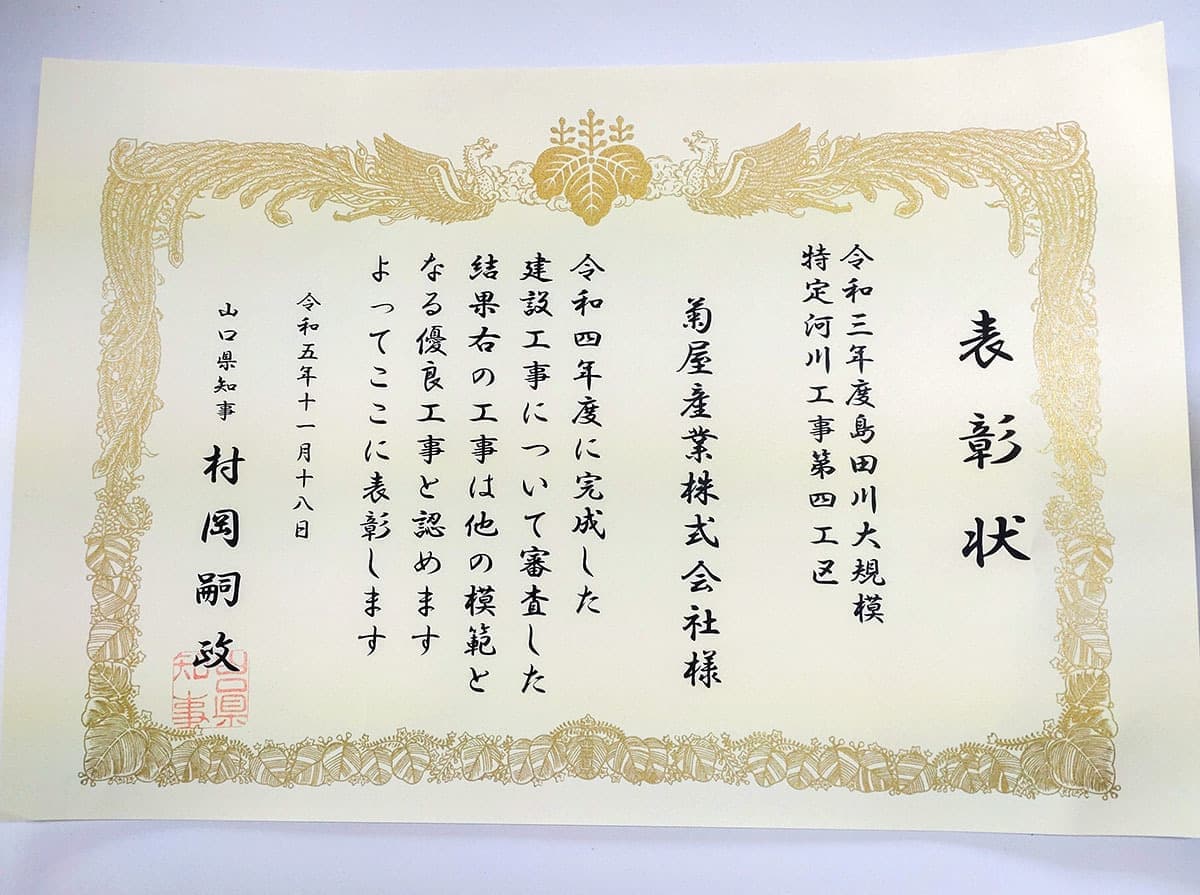 表彰状
令和三年度島田川大規模
特定河川工事第四工区
菊屋産業株式会社様
令和四年度に完成した
建設工事について審査した
結果右の工事は他の模範と
なる優良工事と認めます
よってここに表彰します
令和五年十一月十八日
山口県知事 村岡嗣政
山口県
知事